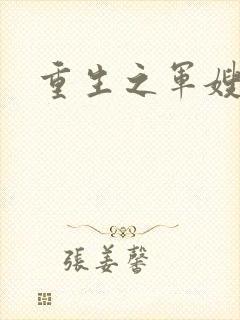 重生之军嫂
張姜馨